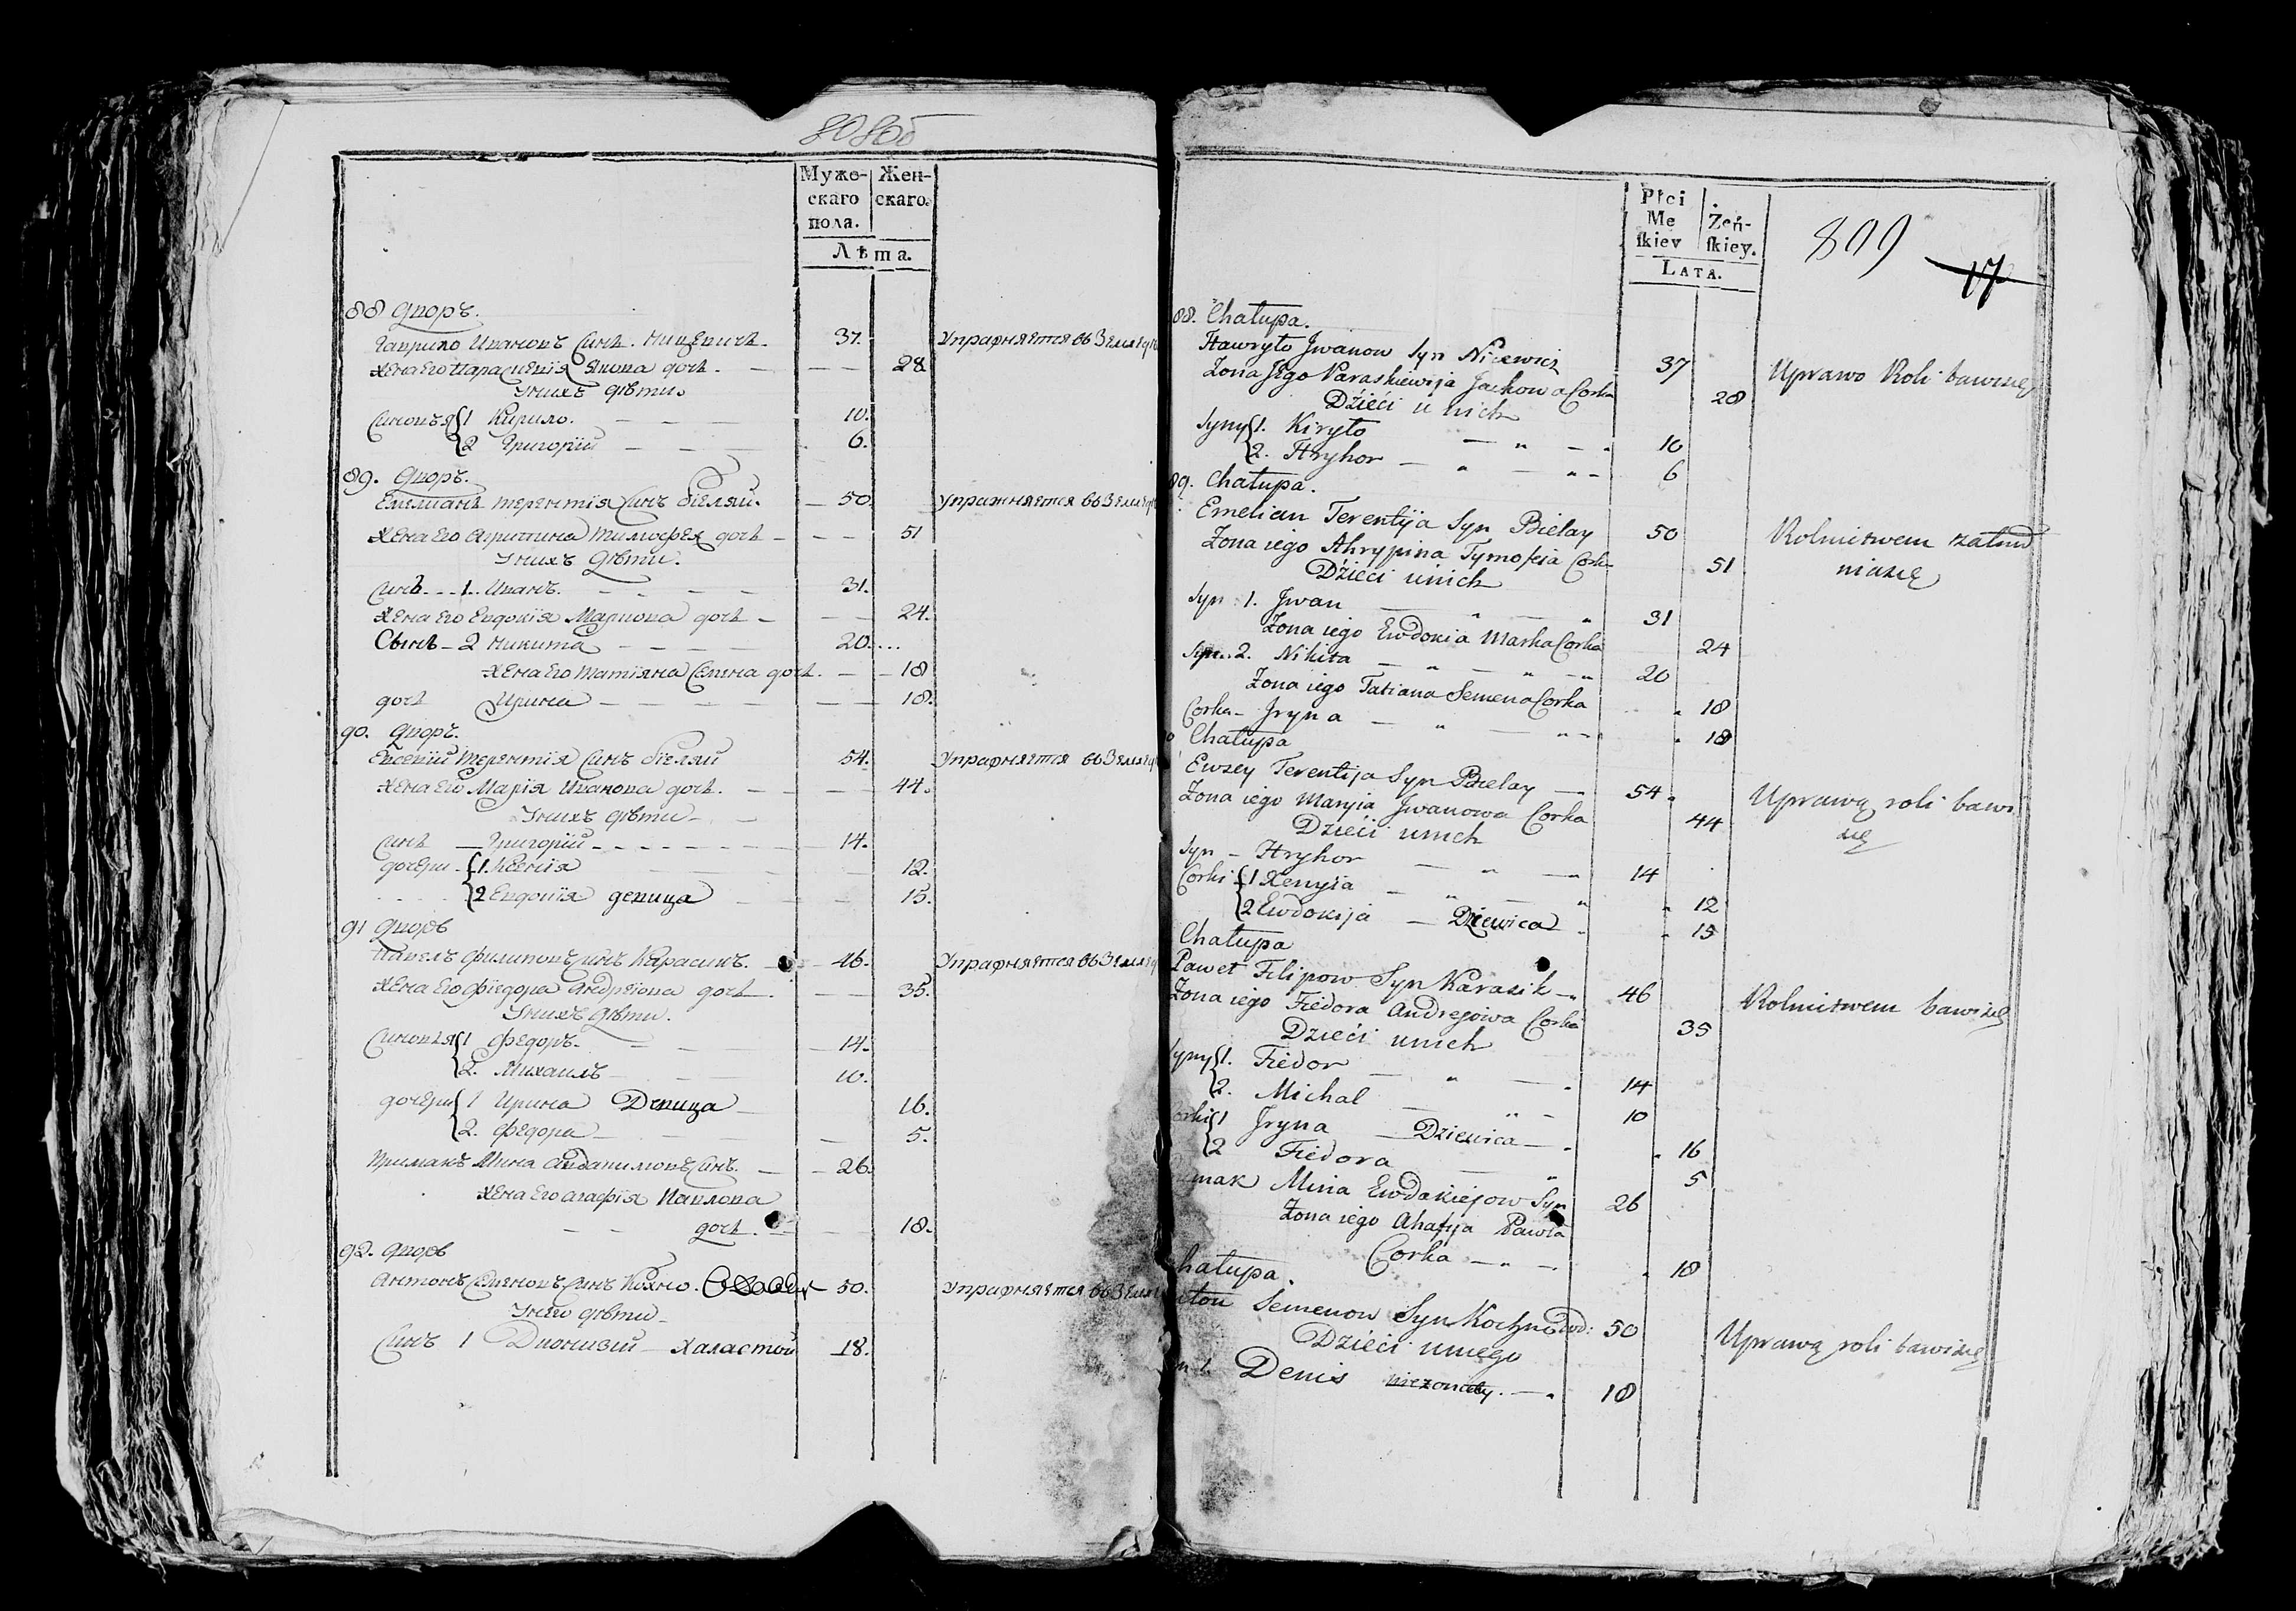 808об
Мужескаго пола.
Женскаго.
Лѣта.
88 Дворъ.
Гаврило Ивановъ Синъ. Ницевичъ. 37. Упражняется въ Земле
жена его Параскевія Якова дочъ. — — — 28
Унихъ Дѣти.
Синовъя {1 Кирило. — — — 10.
{2 Григорій — — — 6.
89. Дворъ.
Емелианъ терентія Синъ бієляй. — 50. Упражняется въ Земле
жена его агрипина тимофея дочъ — — — 51
Унихъ Дѣти.
Синъ - - - 1. Иванъ. — — — 31.
жена его Евдокія Маркова дочъ — — — 24.
Сынъ - 2 Никита — — — 20. ...
жена его татіяна Семена дочъ. — — 18
дочъ Ирина — — — — — 18.
90. Дворъ.
Евсевій терентія Синъ бієляй 54. Упражняется въ Земле
жена его Марія Иванова дочъ. — — — 44.
Унихъ дѣти — —
Синъ — Григорій - - - - - - - 14.
дочери - {1. Ксенія — — — 12.
{2 Евдокія девица — — — 15.
91 Дворъ
Павелъ филиповъ Синъ Карасикъ. — 46. Упражняется въ Земле
жена его фіедора Андреіова дочъ —. — — 35.
Унихъ Дѣти.
Синовъя {1 федоръ. — — — 14.
{2. Михаилъ — — 10.
дочери {1 Ирина Девица — 16.
{2. федора — — — 5.
Примакъ Мина Синъ. — — 26.
жена его агафія Павлова
— — дочъ. — — — 18.
92. Дворъ
Антонъ Семеновъ Синъ Кохно. 50. Упражняется въ Земле
Унего дѣти —
Синъ 1 Дионизий — халастой 18.
Płci Meskiey
Żeńskiey.
LATA.
809
17
88. Chałupa.
Hawryło Jwanow Syn Nicewicz 37 Uprawo Roli bawisię
Zona Jego Paraskiewija Jackowa Corka 28
Dźieći u nich
Syny {1. Kiryło — „ — - 10
{2. Hryhor — „ — „ - 6
89. Chałupa.
Emelian Terentija Syn Bielay 50 Rolnictwem zatrud
Zona iego Ahrypina Tymofeia Corka 51 niasię
Dźieći unich
Syn 1. Jwan — „ — „ 31
Zona iego Ewdokia Marka Corka 24
Syn. 2. Nikita — „ — „ — „ 20
Zona iego Tatiana Semena Corka „ 18
Corka - Jryna — „ — „ - „ 18
Chałupa
Ewzey Terentija Syn Bielay — 54. Uprawą roli bawi
Zona iego Maryia Jwanowa Corka 44 się
Dzieći unich
Syn - Hryhor — „ — 14
Corki {1 Xenyia — „ — „ „ 12
{2 Ewdokija — Dziewica „ „ 15
Chałupa
Paweł Filipow Syn Karasik — „ 46 Rolnictwem bawisię
Zona iego Fiedora Andrejowa Corka 35
Dzieći unich
Syny {1. Fiedor — „ — „ 14
{2. Michał — „ - 10
Corki {1 Jryna — Dziewica — „ „ 16
{2 Fiedora — „ 5
mak Mina Ewdakiejow Syn 26
Zona iego Ahafija Pawła
Corka — „ — „ 18
hałupa.
ton Semenow Syn Kochno wd: 50 Uprawą roli bawisię
Dzieći uniego
n 1. Denis niezonaty. — „ 18